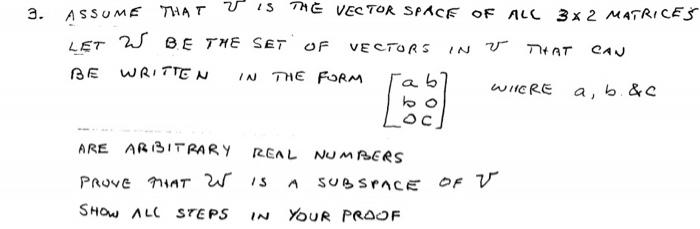 3. ASSUME THAT V IS THE VECTOR SPACE OF ALL 3x2 MATRICES
LET W BE THE SET OF VECTORS IN V THAT CAN
BE WRITTEN IN THE FORM [a b
b 0
0 c] WHERE a, b. &c
ARE ARBITRARY REAL NUMBERS
PROVE THAT W IS A SUBSPACE OF V
SHOW ALL STEPS IN YOUR PROOF